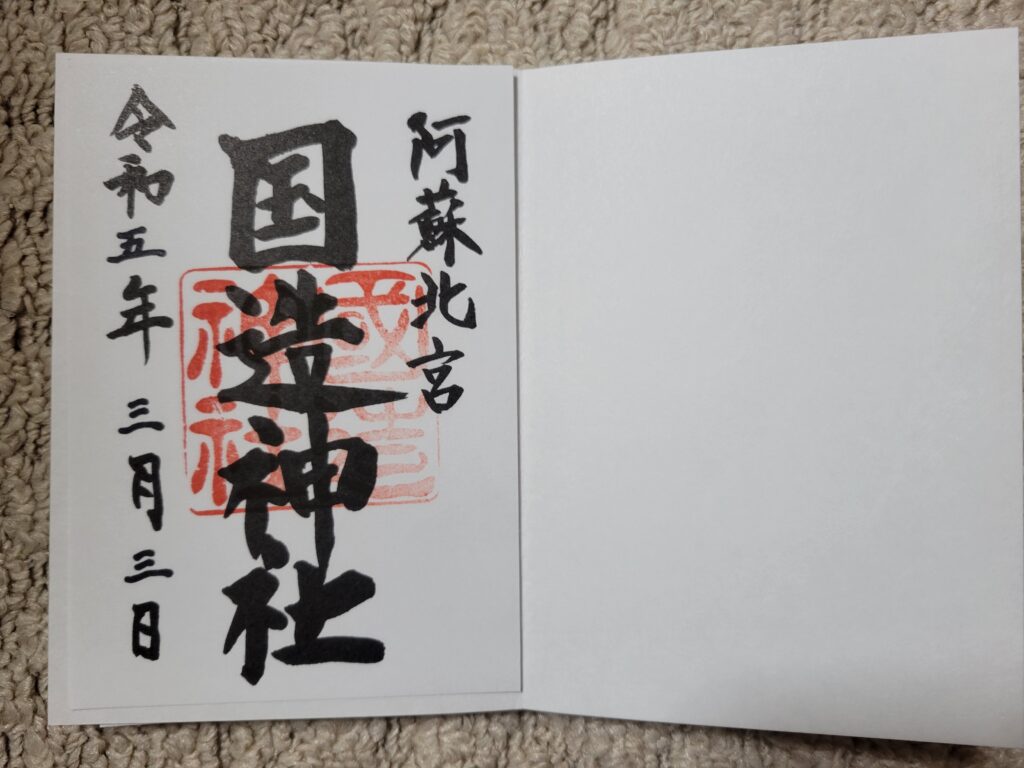 阿蘇北宮
国造神社
國造神社
令和五年三月三日